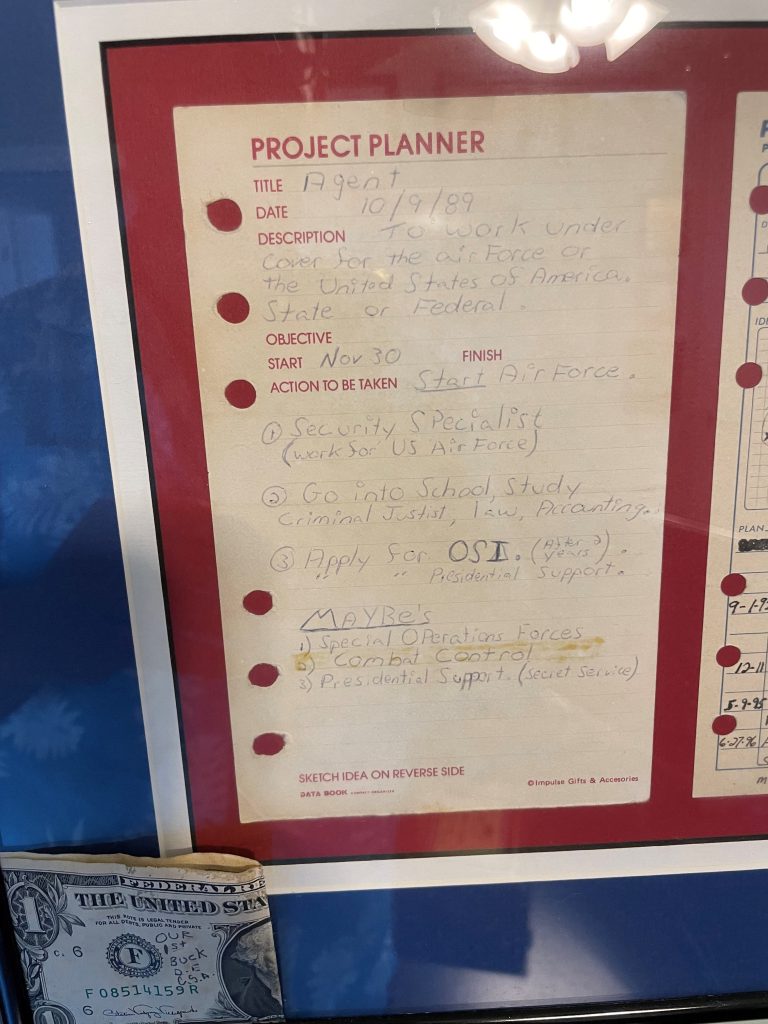 PROJECT PLANNER
TITLE Agent
DATE 10/9/89
DESCRIPTION To work under
cover for the air Force or
the United States of America.
State or Federal.
OBJECTIVE
START Nov 30 FINISH
ACTION TO BE TAKEN Start Air Force.
① Security Specialist
(work for US Air Force)
② Go into School, Study
Criminal Justist, law, Accounting.
③ Apply for OSI. (After 2 years).
" " " " Presidential Support.
MAYBe's
1) Special Operations Forces
2) Combat Control
3) Presidential Support. (Secret Service)
SKETCH IDEA ON REVERSE SIDE
DATA BOOK COMPACT ORGANIZER
© Impulse Gifts & Accesories
IDE
PLAN
9-1-9
12-11
5-9-95
6-27-96
FEDERAL RE
THE UNITED STA
THIS NOTE IS LEGAL TENDER
FOR ALL DEBTS, PUBLIC AND PRIVATE
1
OUR
1st
BUCK
D.E
C.S.A.
C. 6
F
F 08514159 R
6